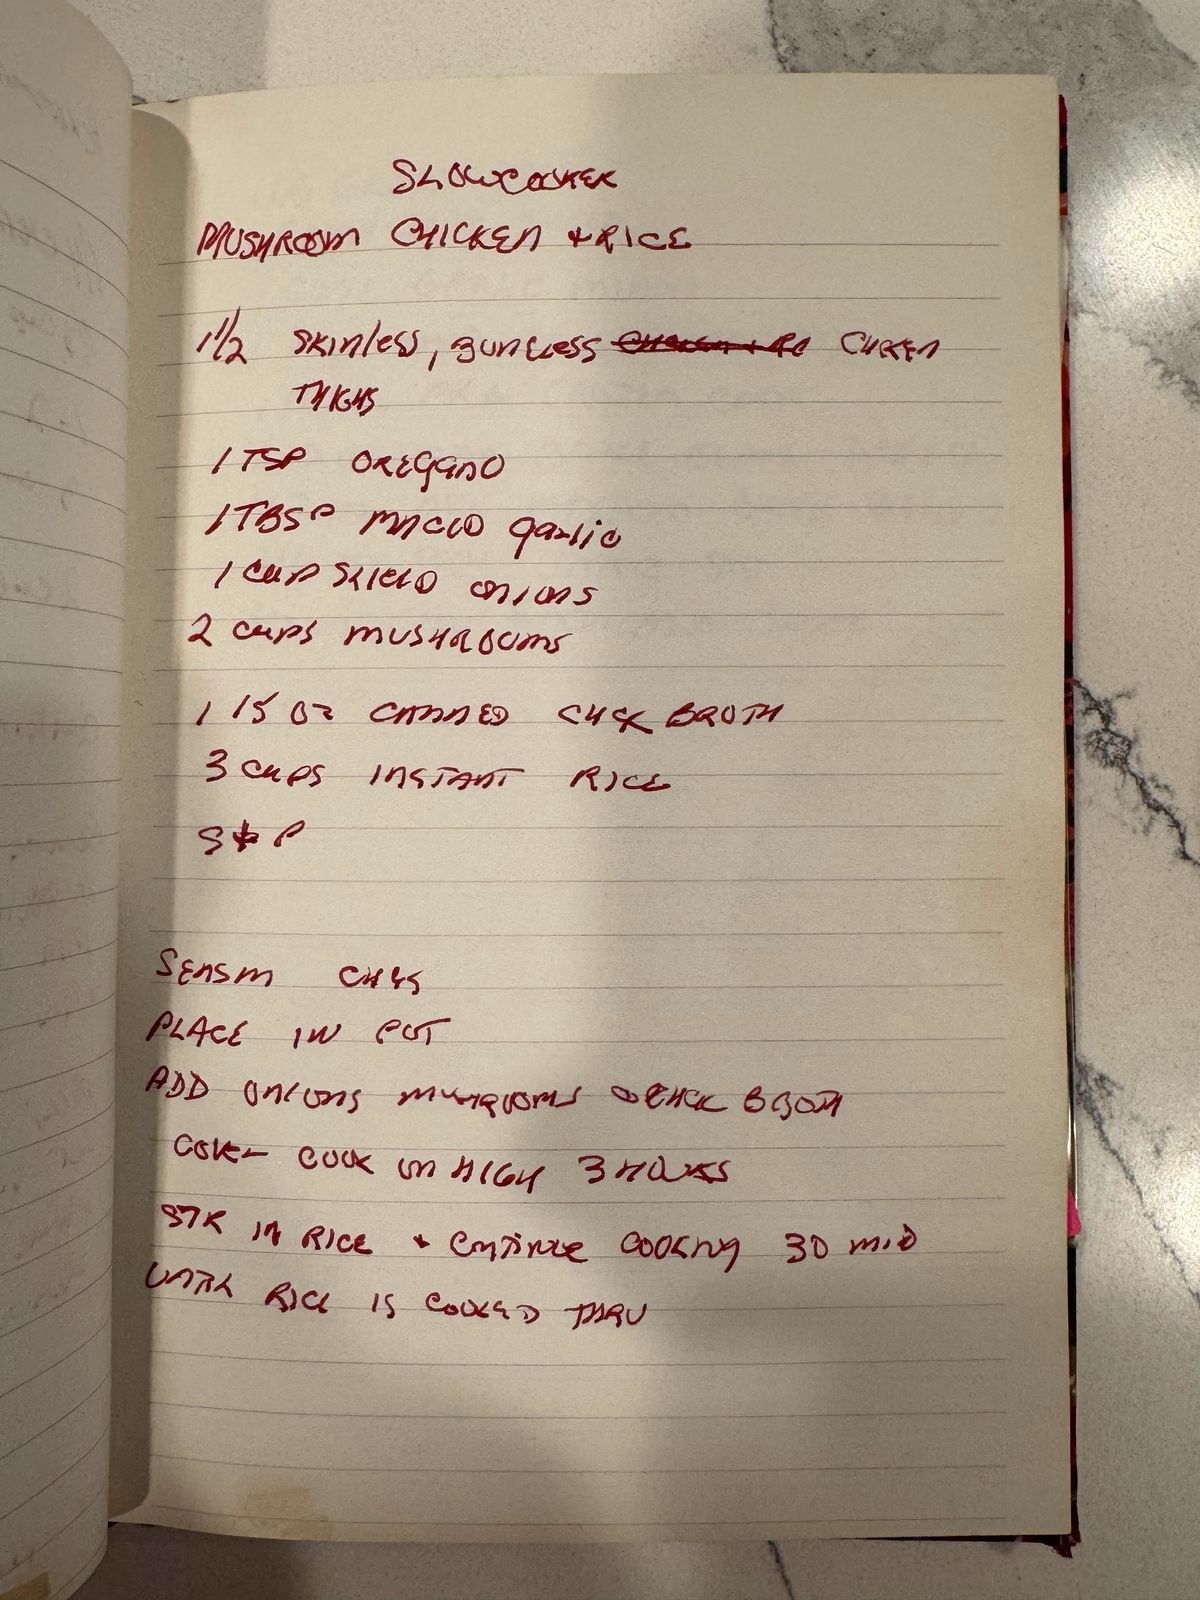 SLOWCOOKER
MUSHROOM CHICKEN + RICE
1 1/2 SKINless, BONELESS CHICKEN
THIGHS
1 TSP OREGANO
1 TBSP MINCED garlic
1 CUP SLICED ONIONS
2 CUPS MUSHROOMS
1 15 OZ CANNED CHCK BROTH
3 CUPS INSTANT RICE
S & P
SEASON
PLACE IN POT
ADD ONIONS MUSHROOMS + CHCK BROTH
COVER COOK ON HIGH 3 HOURS
STR IN RICE + CONTINUE COOKING 30 MIN
UNTIL RICE IS COOKED THRU